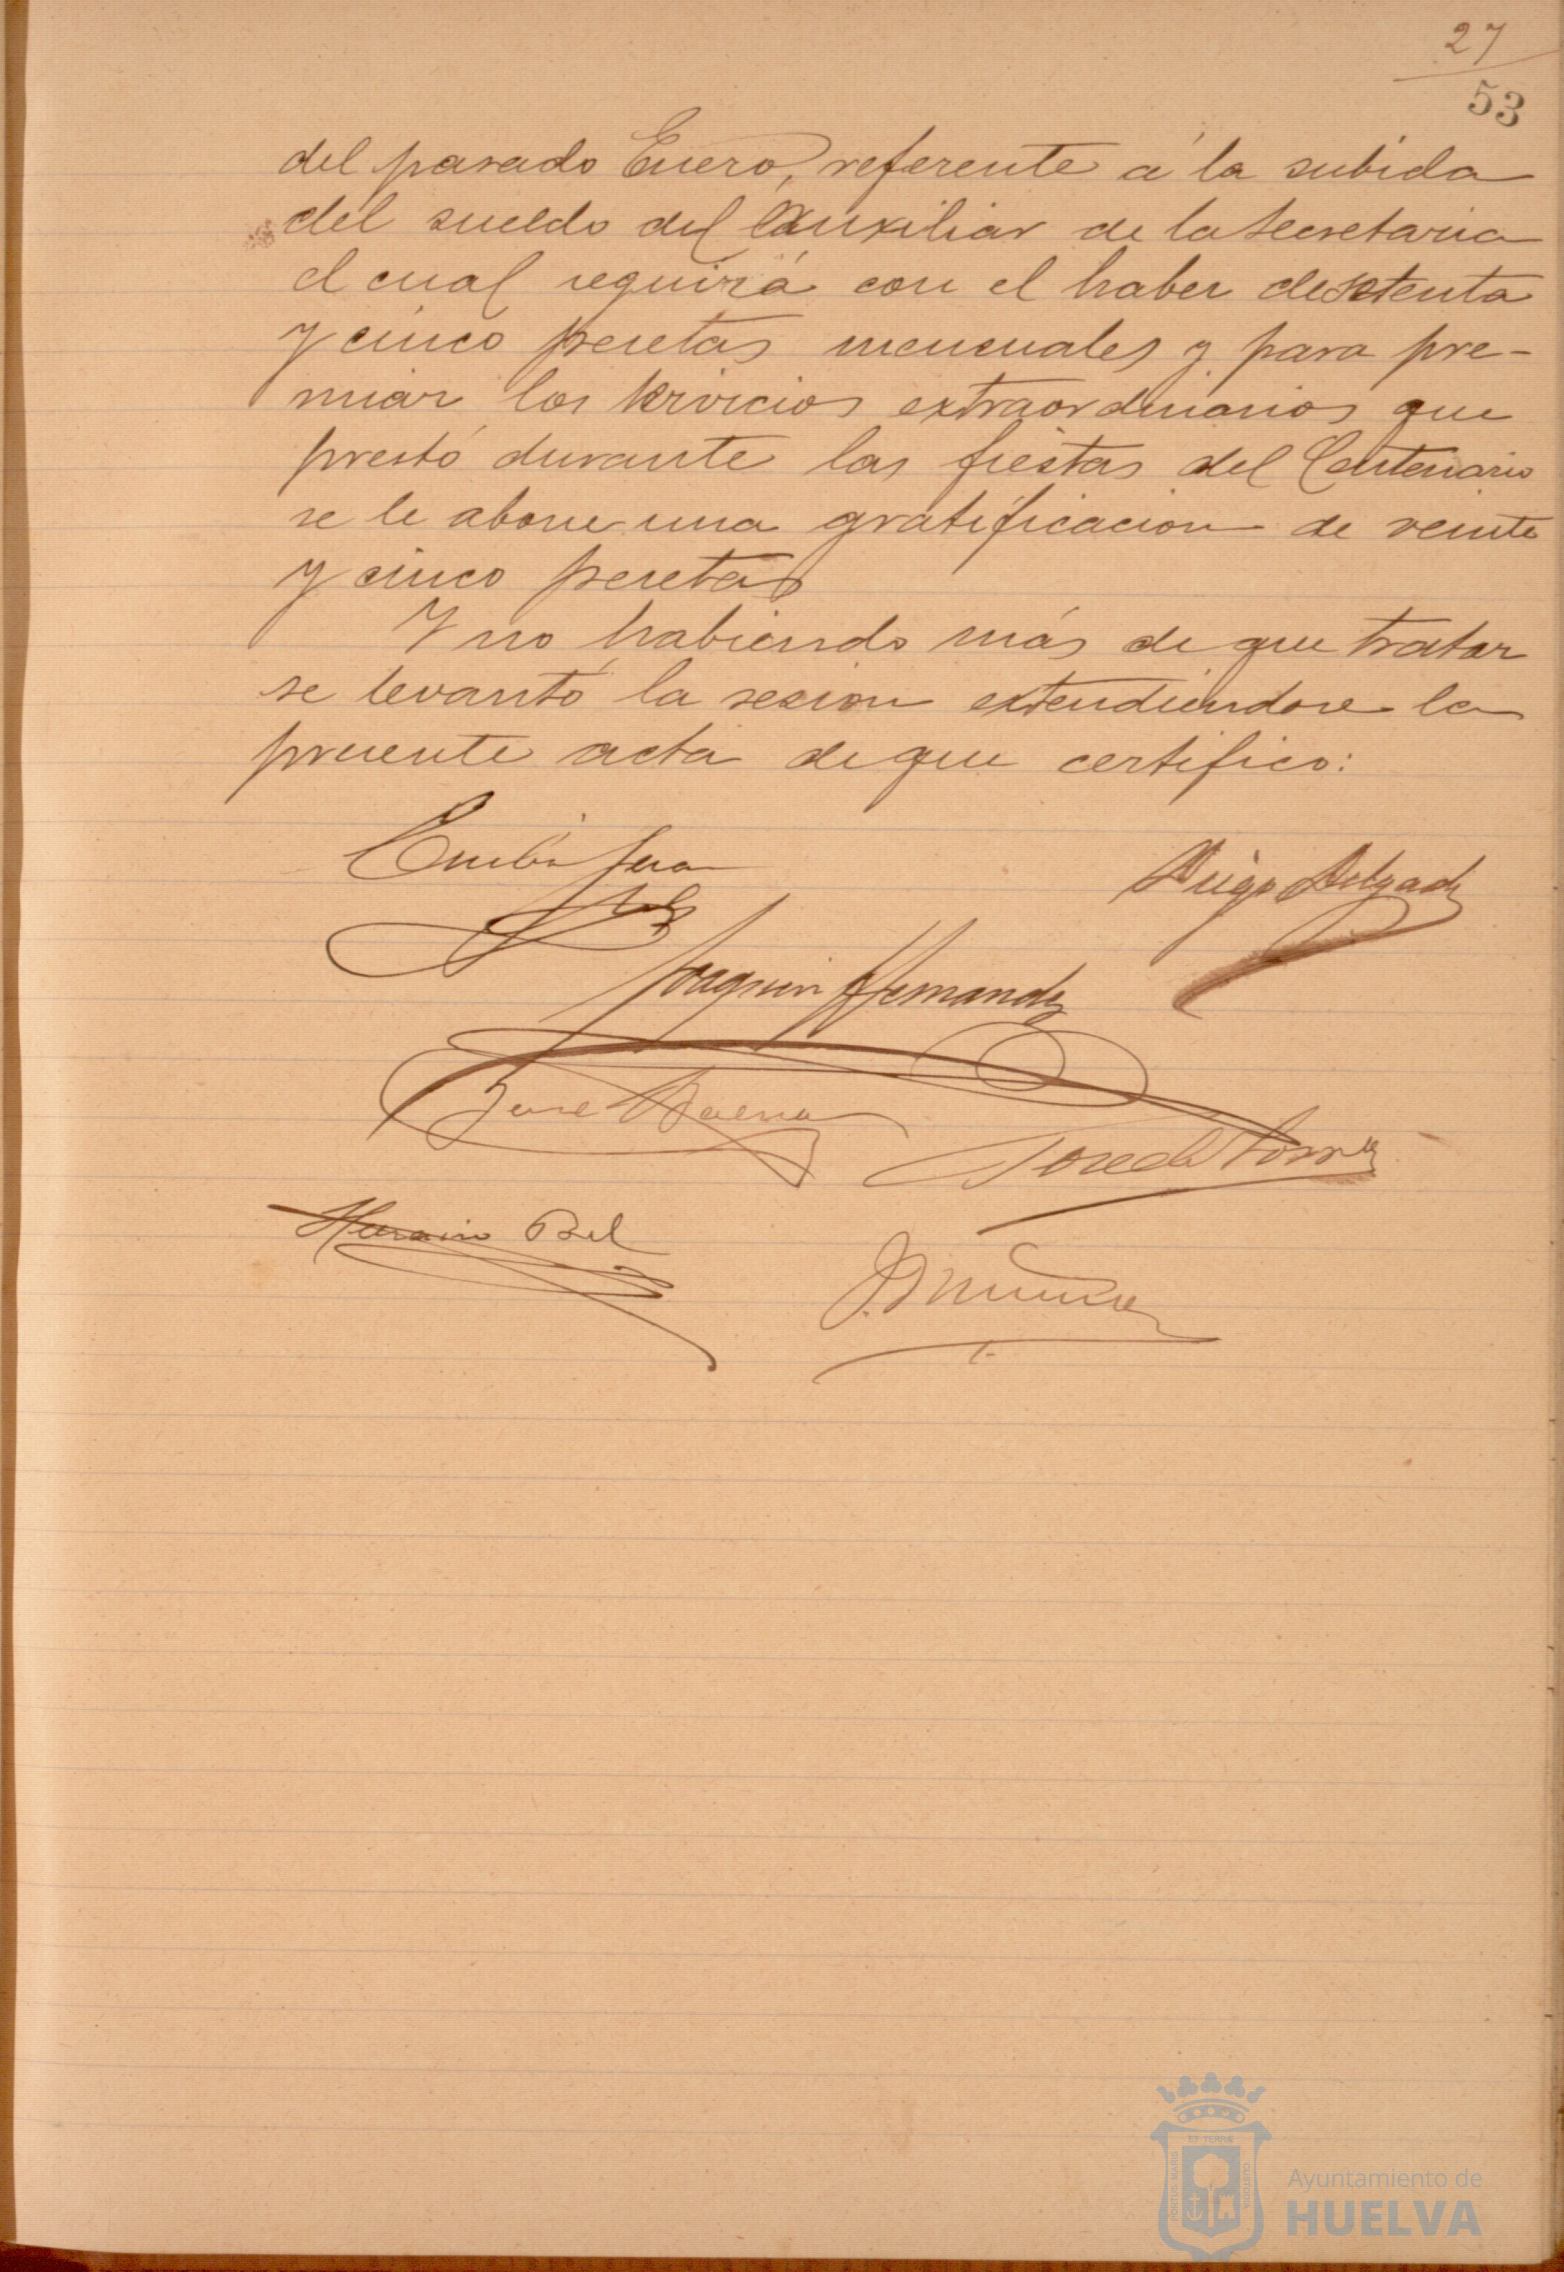 27
53
del pasado Enero, referente á la subida
del sueldo del Auxiliar de la Secretaria
el cual seguirá con el haber de setenta
y cinco pesetas mensuales y para pre-
miar los servicios extraordinarios que
prestó durante las fiestas del Centenario
se le abone una gratificacion de veinte
y cinco pesetas
Y no habiendo más de que tratar
se levantó la sesion extendiendose la
presente acta de que certifico:
Diego Delgado
Joaquin Hernandez
José Baena
José de Torres
Bel
J. Muñoz
ET TERRÆ
PORTUS MARIS
CUSTODIA
Ayuntamiento de
HUELVA